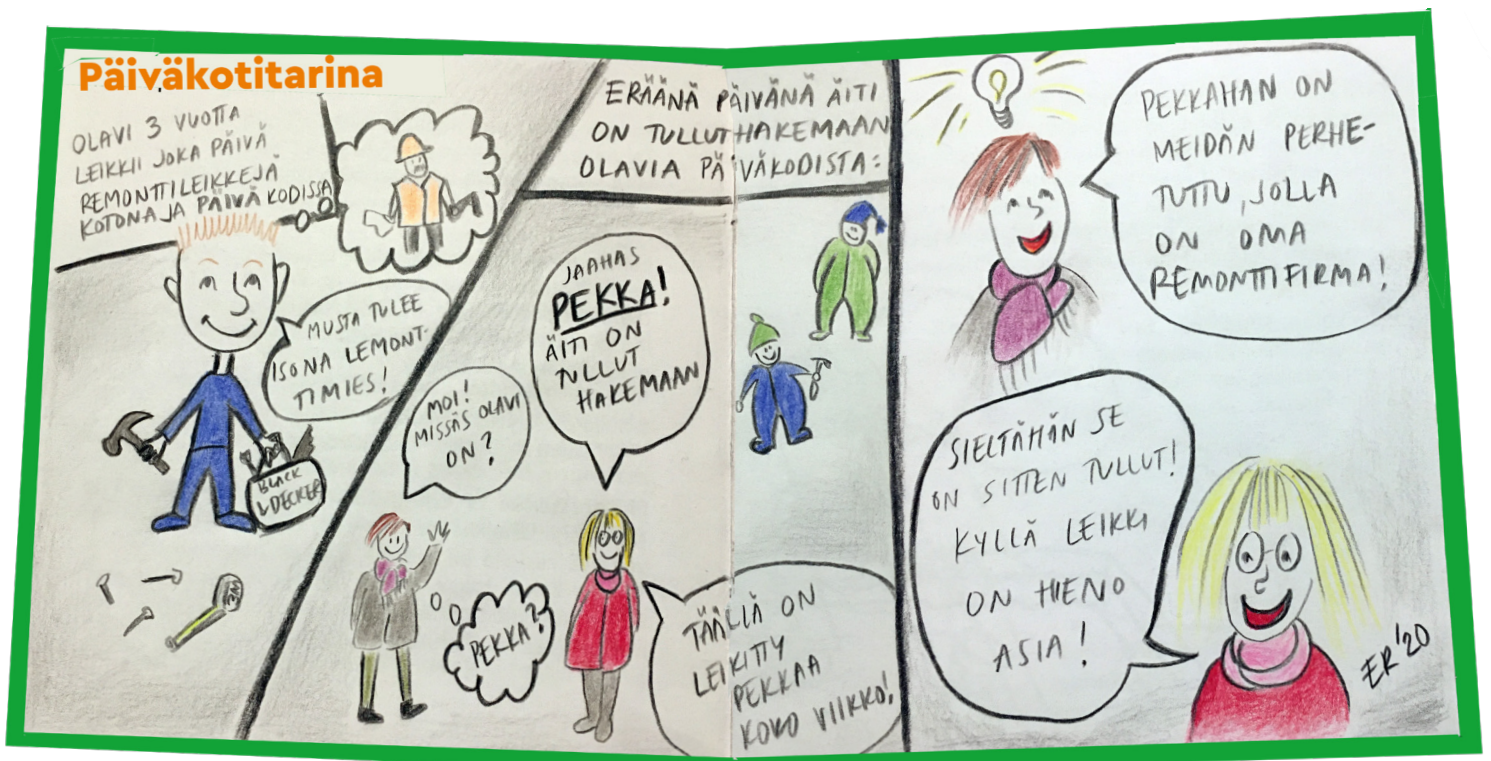 Päiväkotitarina
OLAVI 3 VUOTTA
LEIKKII JOKA PÄIVÄ
REMONTTILEIKKEJÄ
KOTONA JA PÄIVÄKODISSA
MUSTA TULEE
ISONA LEMONT-
TIMIES!
BLACK
&DECKER
ERÄÄNÄ PÄIVÄNÄ ÄITI
ON TULLUT HAKEMAAN
OLAVIA PÄIVÄKODISTA:
MOI!
MISSÄS OLAVI
ON?
JAAHAS
PEKKA!
ÄITI ON
TULLUT
HAKEMAAN
PEKKA?
TÄÄLLÄ ON
LEIKITTY
PEKKAA
KOKO VIIKKO!
PEKKAHAN ON
MEIDÄN PERHE-
TUTTU, JOLLA
ON OMA
REMONTTIFIRMA!
SIELTÄHÄN SE
ON SITTEN TULLUT!
KYLLÄ LEIKKI
ON HIENO
ASIA!
ER'20